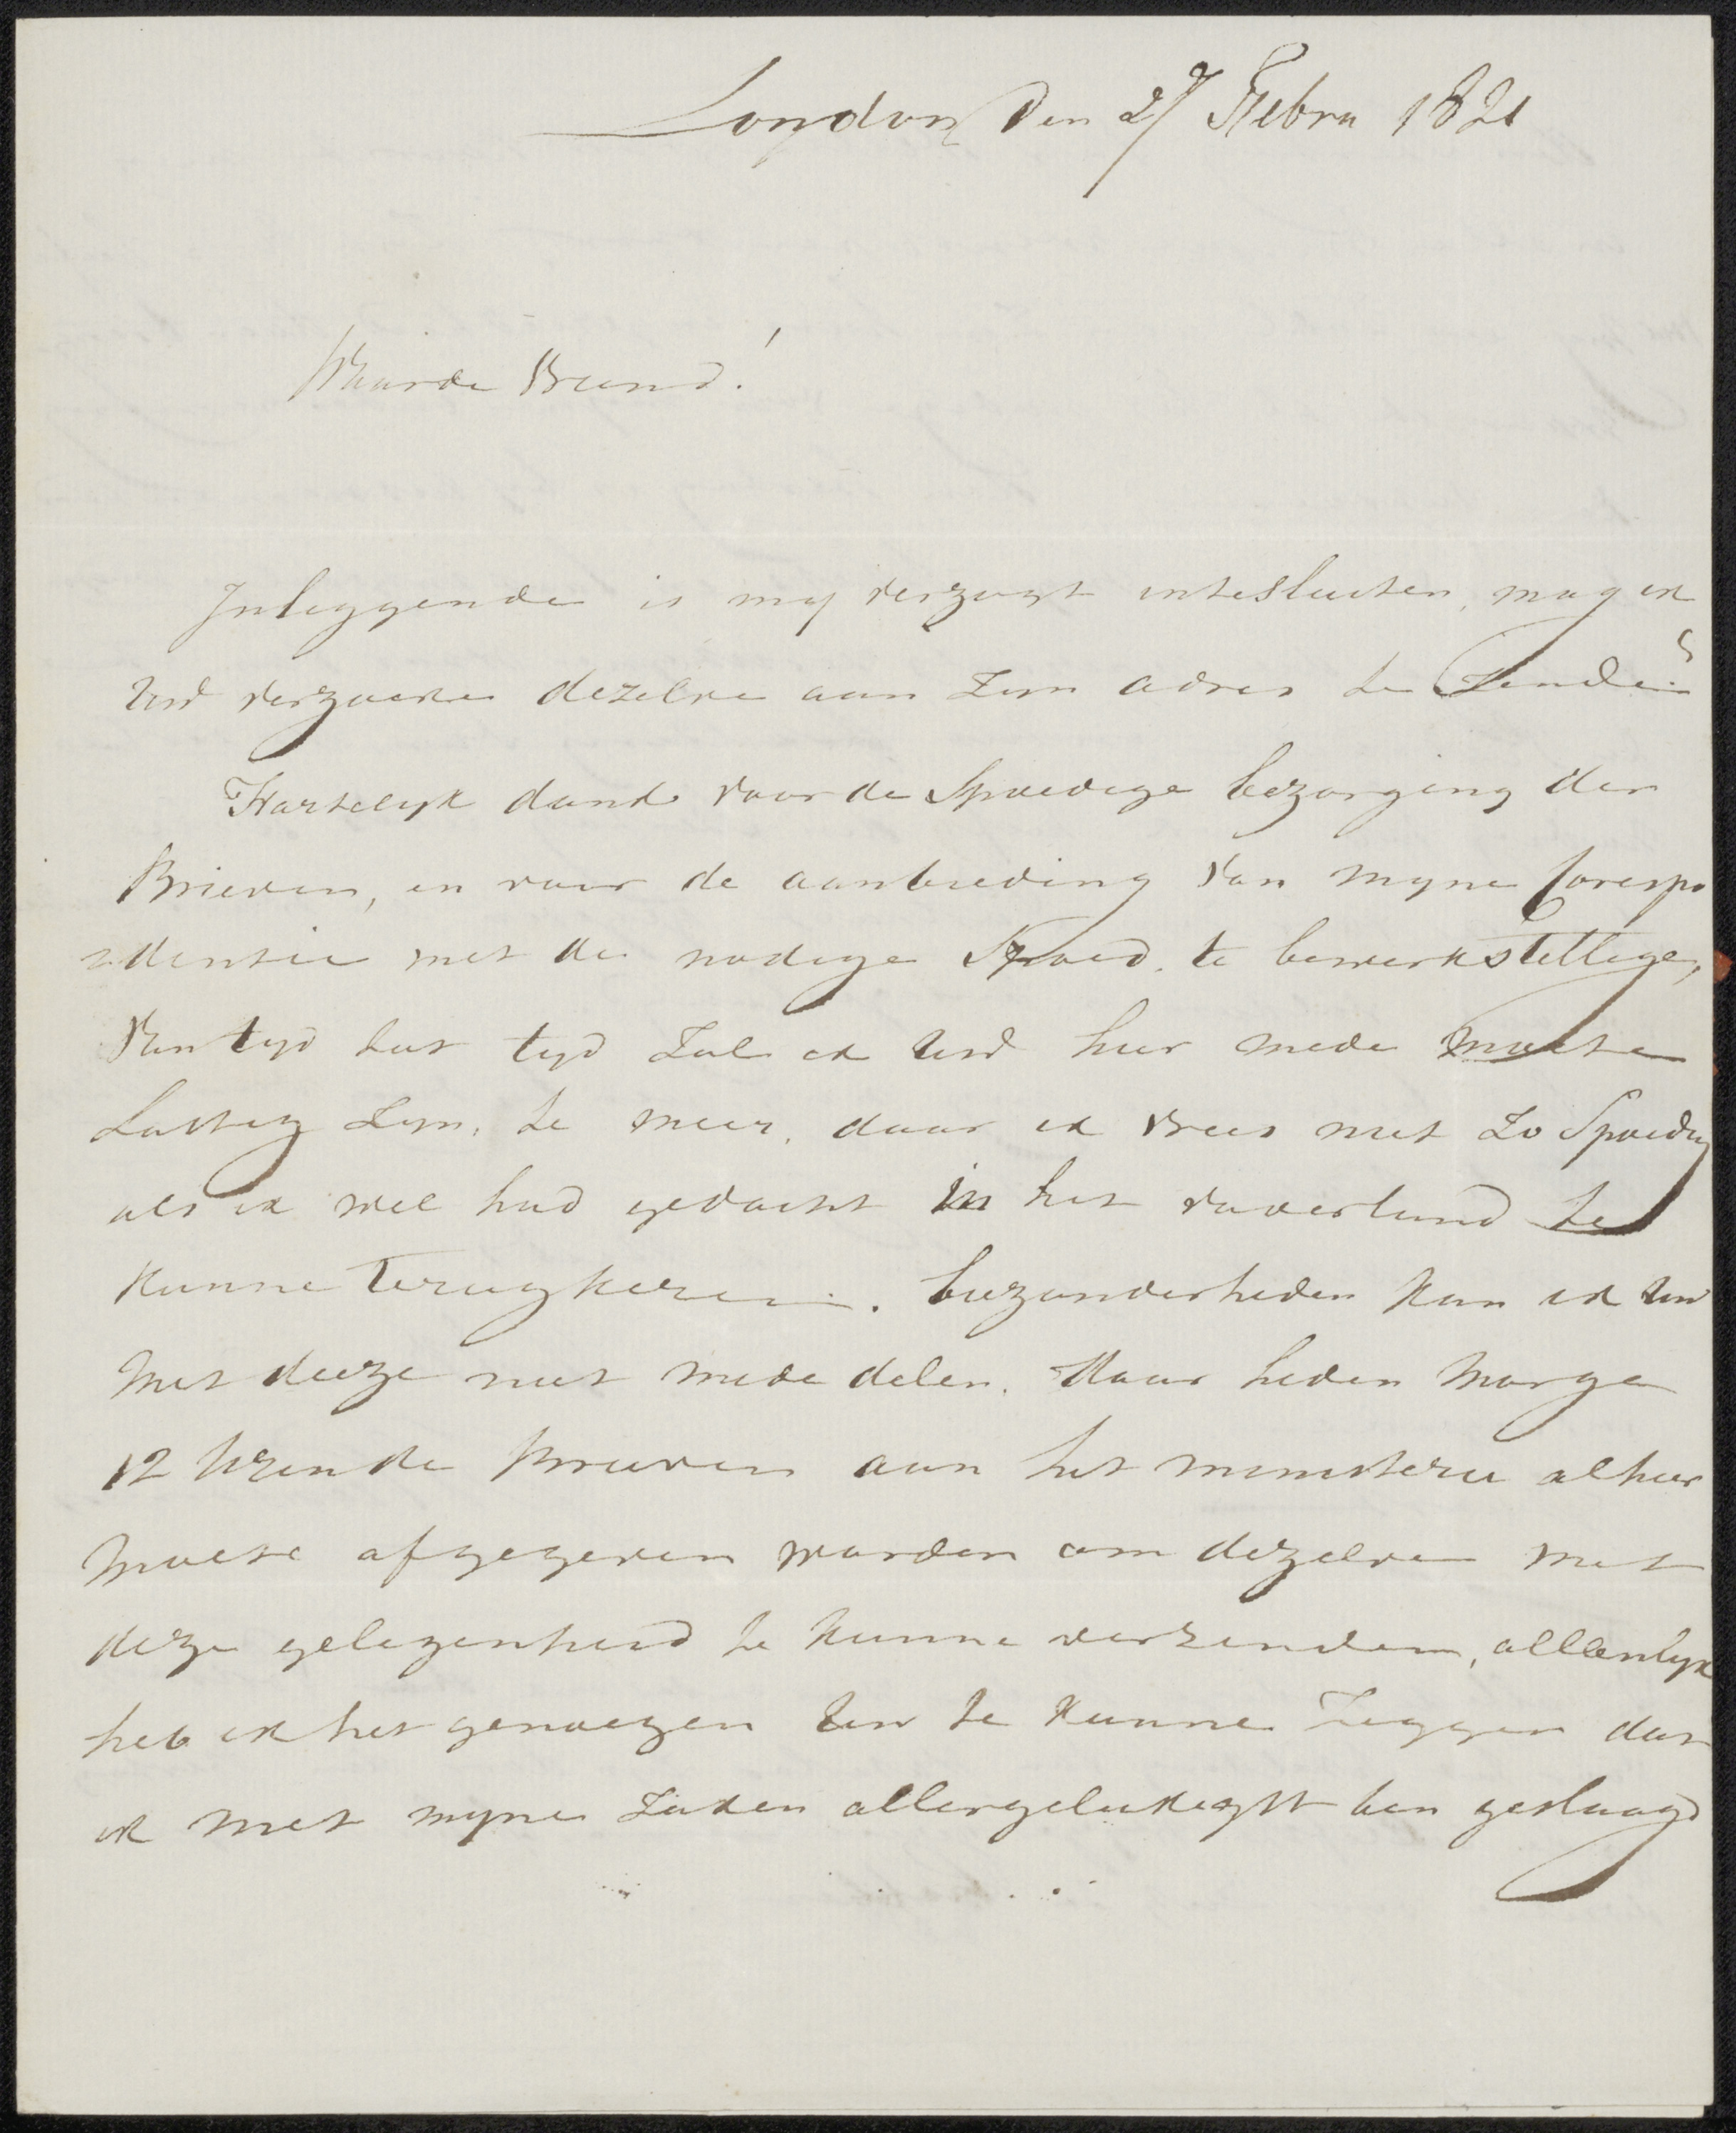 London den 27 Febru 1821
Waarde Vriend!
Inleggende is my verzogt intesluiten, mag ik
Uwd verzoeken dezelve aan zyn adres te zenden
Hartelyk dank voor de Spoedige bezorging der
Brieven, en voor de aanbieding van myne Corespo
ndentie met de nodige Spoed te bewerkstellige,
Van tyd tot tyd zal ik Uwd hier mede moete
lastig zyn, te meer, daar ik vrees niet zo Spoedig
als ik wel had gedacht in het vaderland te
kunne terugkeren. biezonderheden kan ik Uw
met deeze niet mede delen. daar heden morge
12 Uren de brieven aan het ministerie alhier
moete afgegeven worden om dezelve met
deze gelegenheid te kunne verzenden, alleenlyk
heb ik het genoegen Uw te kunne zeggen dat
ik met myne zaken allergelukkigst ben geslaagd